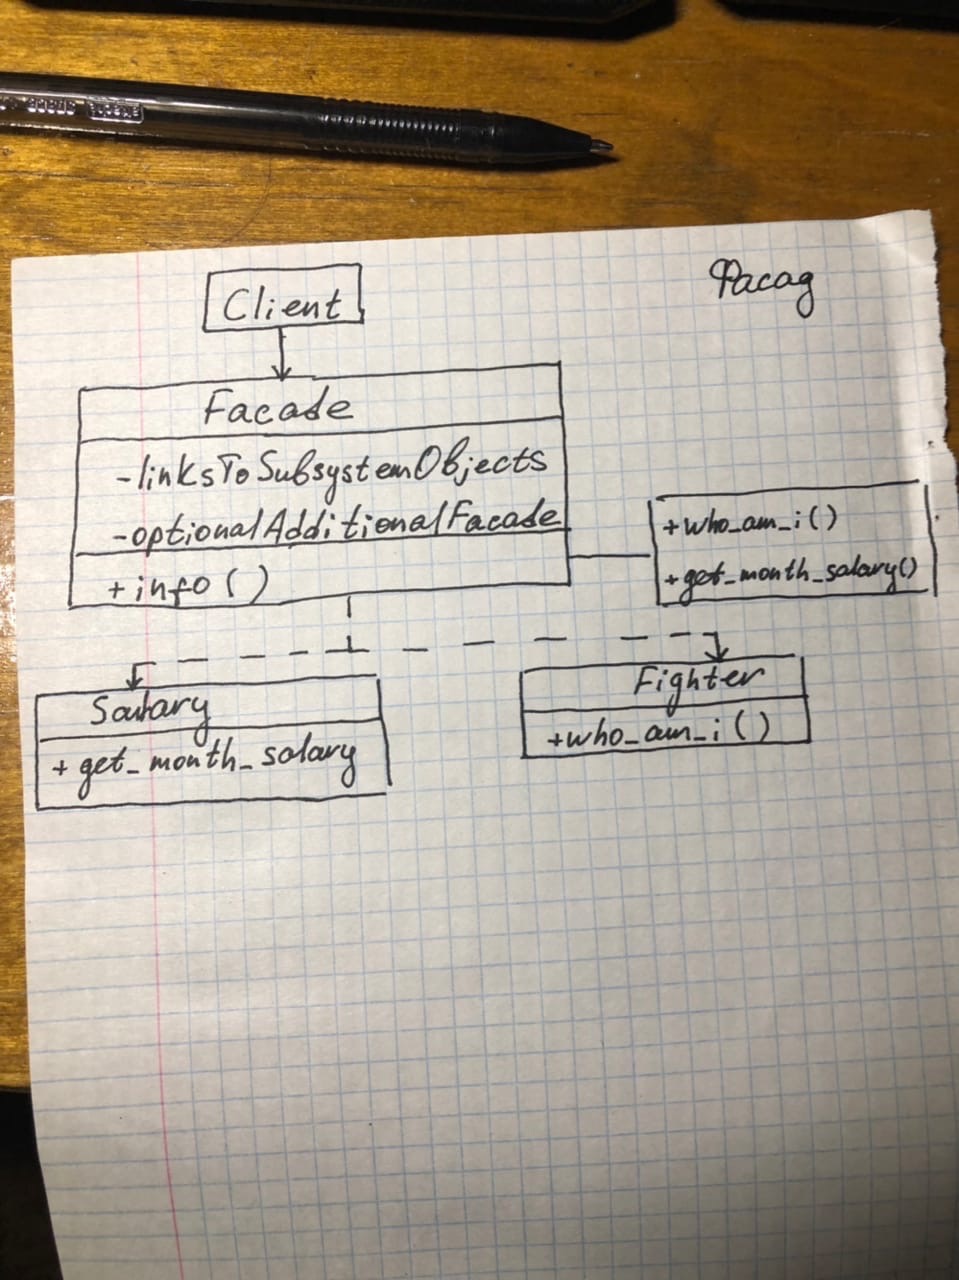 Фасад
Client
Facade
-linksToSubsystemObjects
-optionalAdditionalFacade
+info()
+who_am_i()
+get_month_salary()
Salary
+get_month_salary
Fighter
+who_am_i()